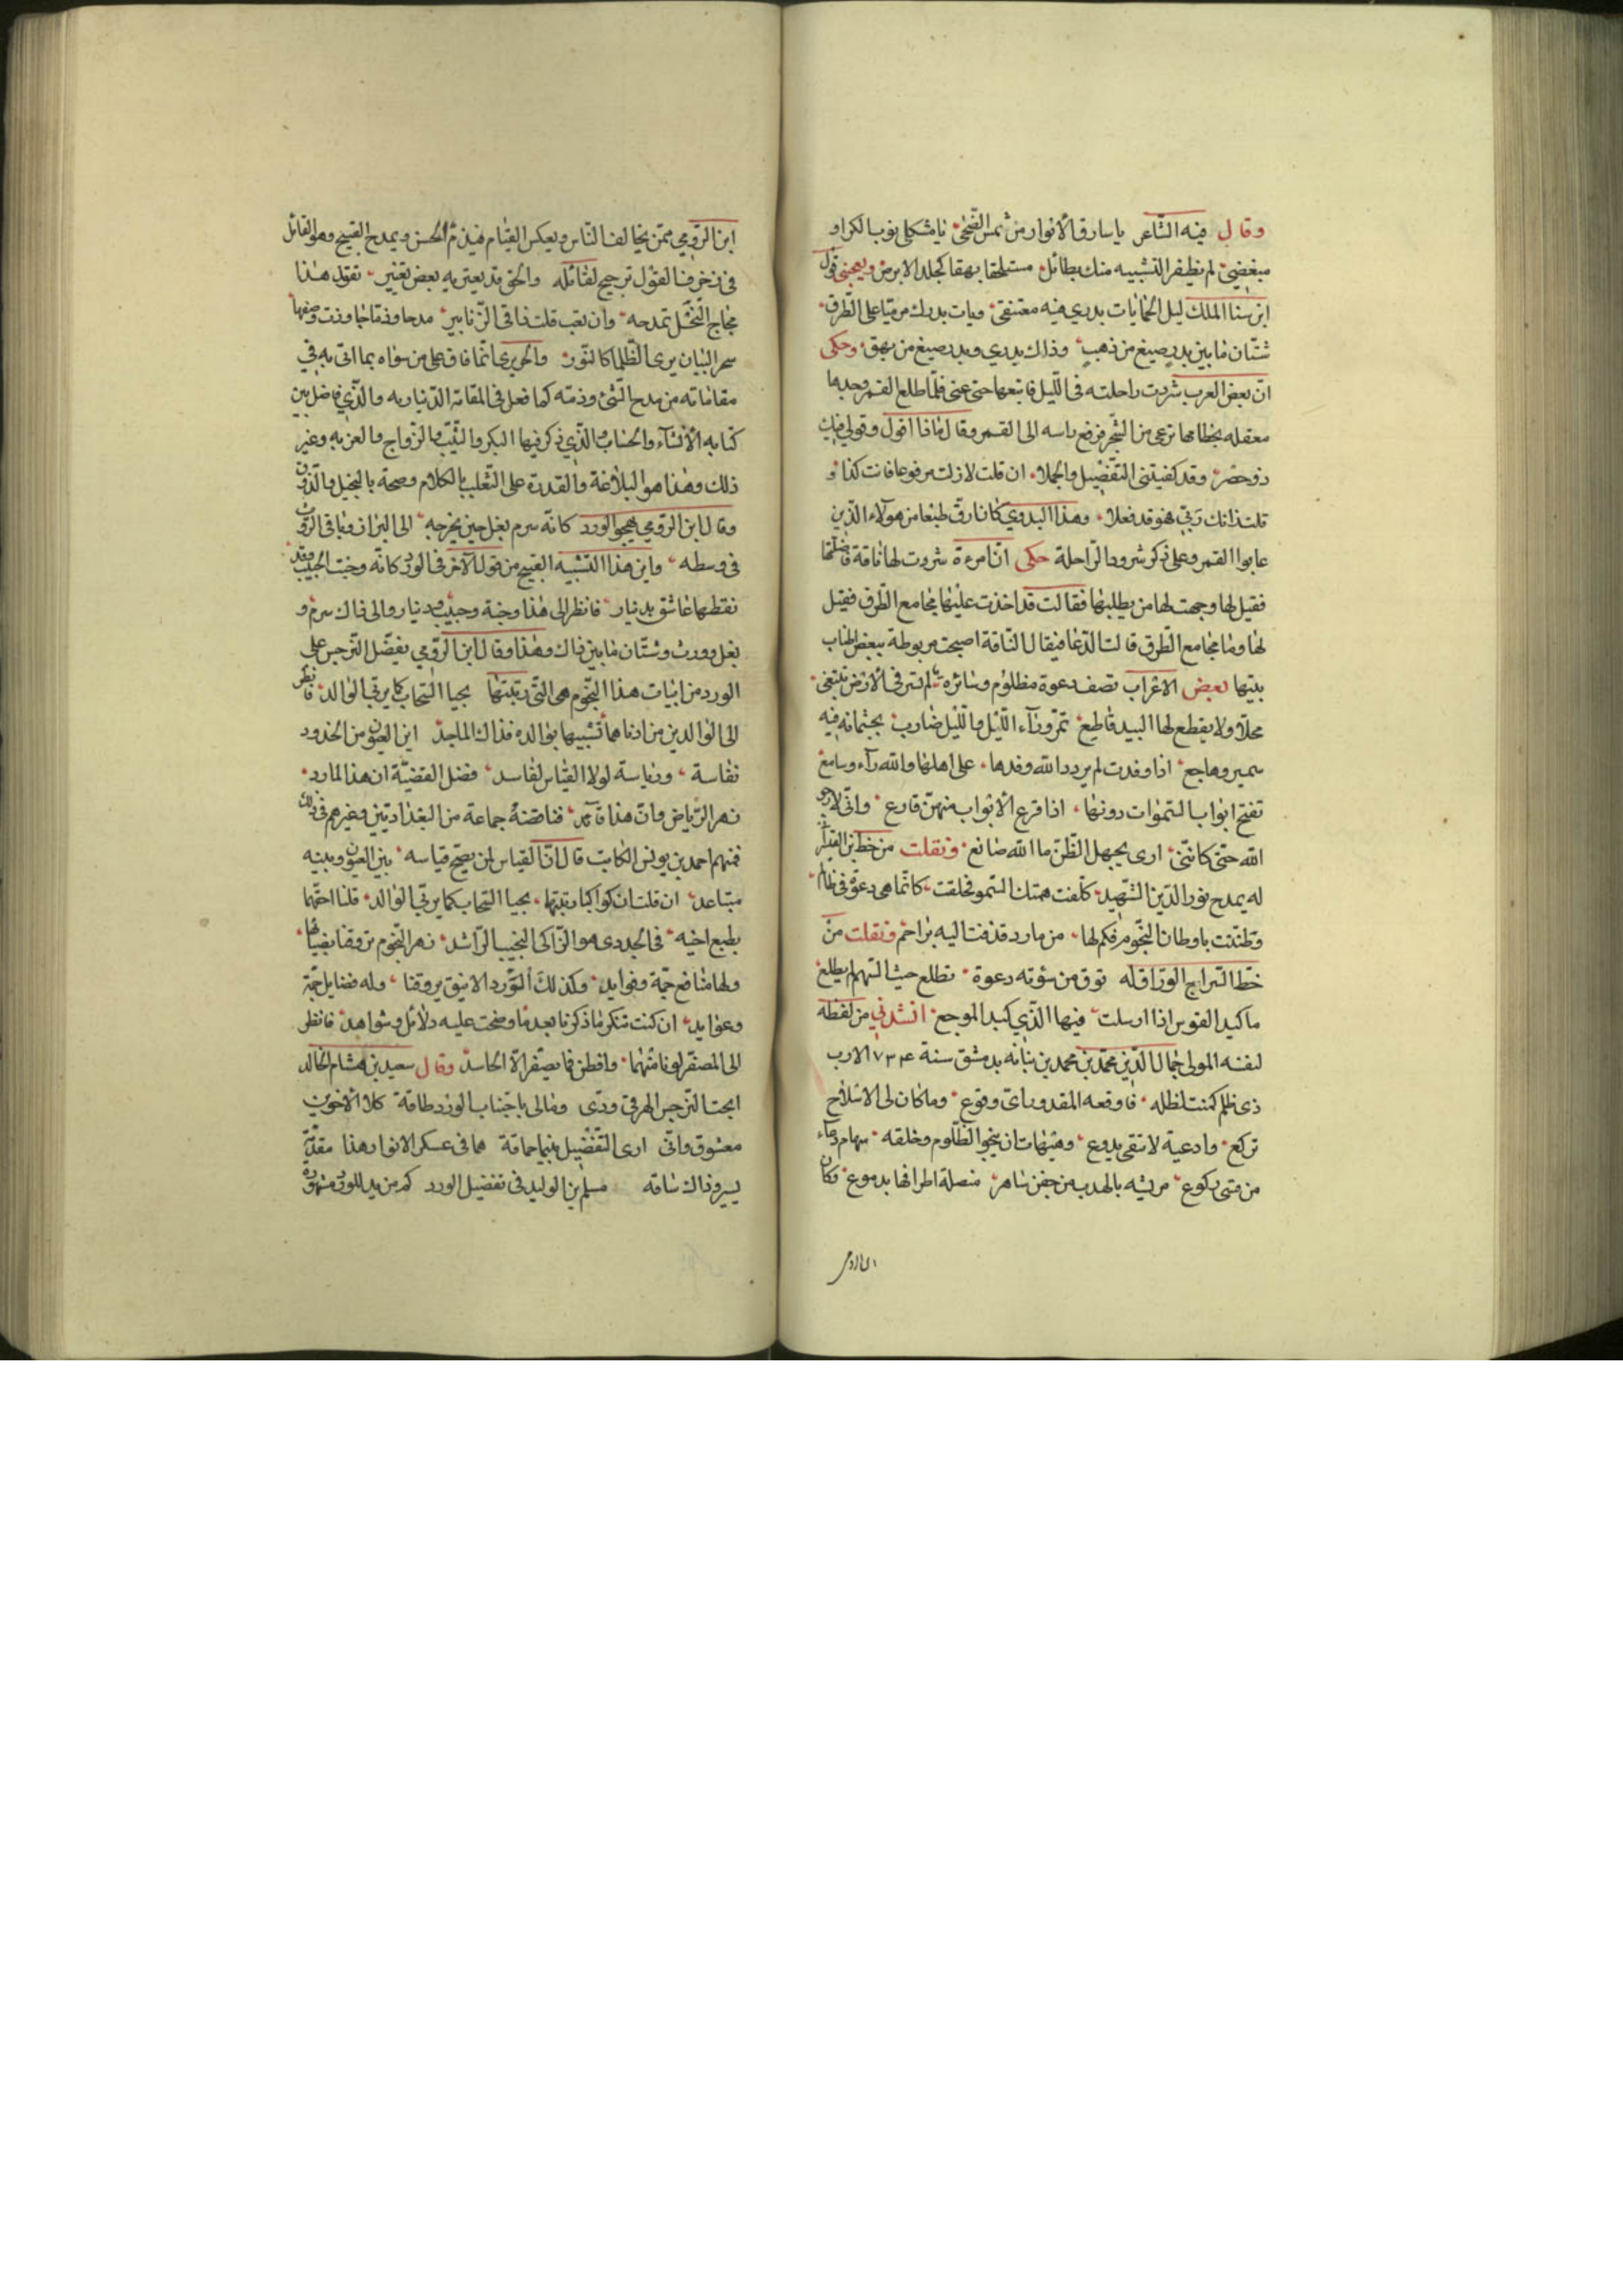 وقال فيه الشاعر يا سارق الأنوار من شمس الضحى يا مثكلي ثوب الكرا و
مبغضي لم يظفر التشبيه منك بطائل مستلحقا بهقا كجلد الابرص ويعجبني قول
ابن سنا الملك ليل الحما بات بدري فيه معتنقي وبات بدرك مرميا على الطرق
شتان ما بين بدر صيغ من ذهب وذاك بدري وبدر صيغ من بهق وحكى
ان بعض العرب شردت راحلته في الليل فاتبعها حتى عيي فلما طلع القمر وجدها
معقله بخطامها ترعى من الشجر فرفع راسه الى القمر وقال ماذا اقول وقولي فيك
ذو حصر وقد كفيتني التفضيل والجملا ان قلت لا زلت مرفوعا فانت كذا و
قلت زانك ربي فهو قد فعلا وهذا البدوي كان ارق طبعا من هولاء الذين
عابوا القمر وعلى ذكر شرود الراحلة حكى ان امرءة شردت لها ناقة فاضلتها
فقيل لها وجهت لها من يطلبها فقالت قد اخذت عليها مجامع الطرق فقيل
لها وما مجامع الطرق قالت الدعا فيقال الناقة اصبحت مربوطة ببعض اطناب
بيتها بعض الاعراب تصف دعوة مظلوم وسائره لم تسر في الارض تبتغي
محلا ولا يقطع لها البيد قاطع تمر وراء الليل والليل ضارب بجثمانه فيه
سمير وهاجع اذا وفدت لم يردد الله وفدها على اهلها والله راء وسامع
تفتح ابواب السموات دونها اذا قرع الابواب منهن قارع واني لارجو
الله حتى كانني ارى بجهل الظن ما الله صانع ونقلت من خط ابن القيسراني
له يمدح نور الدين الشهيد كلفت همتك السمو فحلقت كانما هي دعوة في ظالم
وظننت باوطان النجوم فكم لها من مارد قذفت اليه براحم ونقلت من
خط السراج الوراق له توق من سوته دعوة تطلع حيث السهم لم يطلع
ما كبد القوس اذا ارسلت فيها الذي كبد الموجع انشدني من لفظه
لنفسه المولى جمال الدين محمد بن محمد بن نباته بدمشق سنة ٧٣٤ الا رب
ذي ظلم كمنت لظلمه فاوقعه المقدور اي وقوع وما كان لي الا سلاح
تركع وادعية لا تتقى بدروع وهيهات ان ينجو الظلوم وخلفه سهام دعاء
من قسي ركوع مريشه بالهدب من جفن ساهر منصلة اطرافها بدموع وكان
ابن الرومي ممن يخالف الناس ويعكس القياس فيذم الحسن ويمدح القبيح وهو القائل
في زخرف القول ترجيح لقائله والحق قد يعتريه بعض تغيير تقول هذا
مجاج النحل تمدحه وان تعب قلت ذا قي الزنابير مدحا وذما جاوزت وصفهما
سحر البيان يري الظلما كالنور والحريري انما فاق على من سواه بما اتى به في
مقاماته من مدح الشيء وذمه كما فعل في المقامة الدينارية والذي فاضل بين
كتابه الانشاء والحساب والذي ذكر فيها البكر والثيب والزواج والعزبه وغير
ذلك وهذا هو البلاغة والقدرة على التغلب بالكلام وصحة بالتخيل والذوق
وقال ابن الرومي يهجو الورد كانه سرم بغل حين يخرجه الى البراز وباقي الروث
في وسطه واين هذا التشبيه القبيح من قول الآخر في الورد كانه وجنة الحبيب وقد
نقطها عاشق بدينار فانظر الى هذا وجنة وحبيب ودينار والى ذاك سرم و
بغل وروث وشتان ما بين ذاك وهذا وقال ابن الرومي يفضل النرجس على
الورد من ابيات هذا النجوم هي التي ربتها بحيا السحاب كما يربي الوالد فانظر
الى الوالدين من ادناهما تشبيها بوالده فذاك الماجد اين العيون من الخدود
نفاسة ورياسة لولا القياس الفاسد فضل القضية ان هذا المارد
زهر الرياض وان هذا قائد فناقضه جماعة من البغداديين وغيرهم في ذلك
فمنهم احمد بن يونس الكاتب قال ان القياس لمن يصح قياسه بين العيون وبينه
متباعد ان قلت ان كواكبا ربتها بحيا السحاب كما يربي الوالد قلنا احقهما
بطبع ابيه في الجدوى هو الزاكي النجيب الراشد زهر النجوم تروقنا بضيائها
ولها منافع جمة وفوايد وكذلك الورد الانيق يروقنا وله فضايل جمة
وعوايد ان كنت تنكر ما ذكرنا بعد ما وضحت عليه دلائل وشواهد فانظر
الى المصفر لونا منهما وافطن فما يصفر الا الحاسد وقال سعيد بن هشام الخالدي
ابحت النرجس الهر في ودي ومالي باجتناب الورد طاقة كلا الاخوين
معشوق واني ارى التفضيل بينهما حماقة هما في عسكر الانوار هذا مقدمة
يسير وذاك ساقه مسلم بن الوليد في تفضيل الورد كم من يد للورد مشهورة